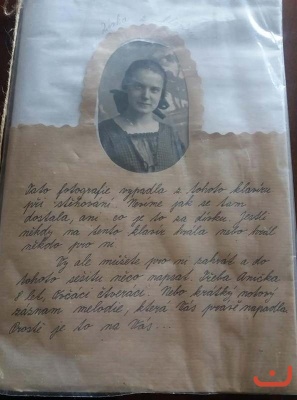 Tato fotografie vypadla z tohoto klavíru
při stěhování. Nevíme jak se tam
dostala, ani co je to za dívku. Jestli
někdy na tento klavír hrála nebo hrál
někdo pro ni.
Vy ale můžete pro ni zahrát a do
tohoto sešitu něco napsat. Třeba Anička
8 let, Kočačí čtveráci. Nebo krátký notový
záznam melodie, která Vás právě napadla
Prostě je to na Vás...